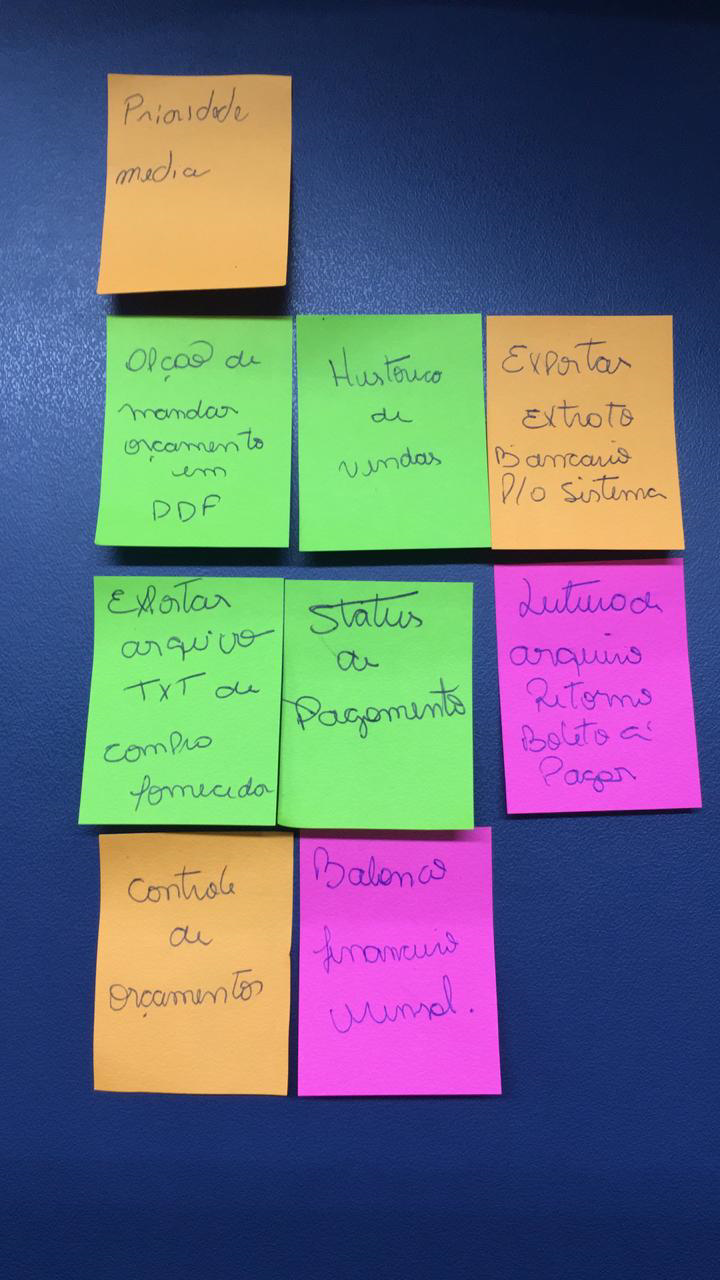 Prioridade
media
Opção de
mandar
orçamento
em
PDF
Histórico
de
vendas
Exportar
Extrato
Bancario
P/o Sistema
Exportar
arquivo
TXT de
compra
fornecedor
Status
de
Pagamento
Leitura de
arquivo
Retorno
Boleto a
Pagar
Controle
de
orçamentos
Balanco
financeiro
mensal.